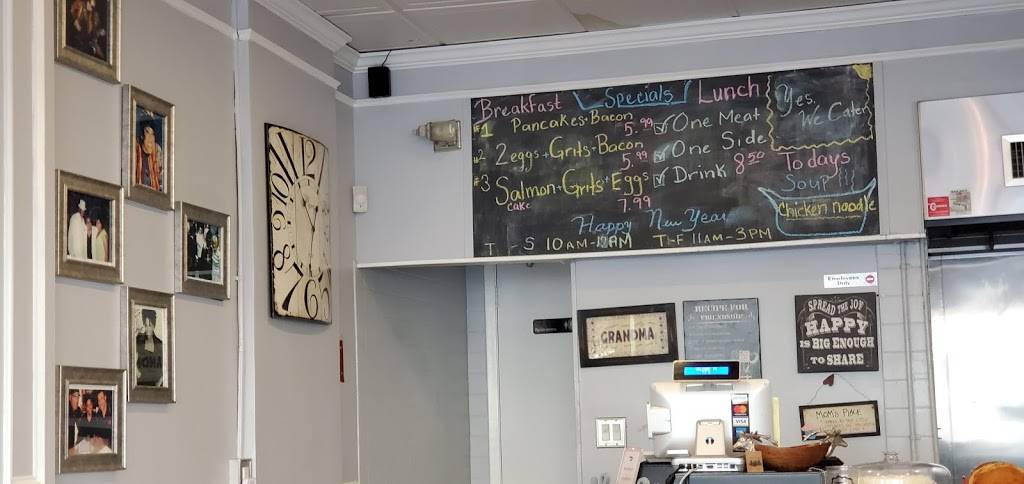 Breakfast Specials Lunch
#1 Pancakes+Bacon 5.99
#2 2eggs+Grits+Bacon 5.99
#3 Salmon+Grits+Eggs
cake 7.99
One Meat
One Side
Drink 8.50
Yes,
We Cater
Todays
Soup!!!
Chicken noodle
Happy New Year
T - S 10AM-12AM T-F 11AM-3PM
12
11
10
9
8
7
6
Employees
Only
GRANDMA
RECIPE FOR
SPREAD THE JOY
HAPPY
IS BIG ENOUGH
TO SHARE
MOM'S PLACE
VISA